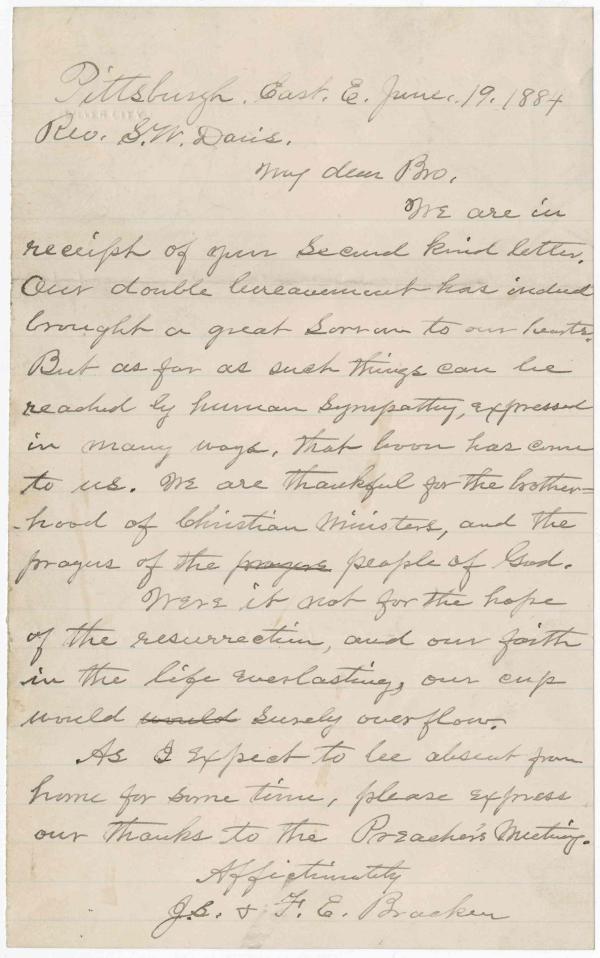 Pittsburgh. East. E. June. 19. 1884
Rev. S.W. Davis.
My dear Bro.
We are in
receipt of your second kind letter.
Our double bereavement has indeed
brought a great sorrow to our hearts.
But as far as such things can be
reached by human sympathy, expressed
in many ways, that boon has come
to us. We are thankful for the brother=
-hood of Christian Ministers, and the
prayers of the prayers people of God.
Were it not for the hope
of the resurrection, and our faith
in the life everlasting, our cup
would would surely overflow.
As I expect to be absent from
home for some time, please express
our thanks to the Preacher's Meeting.
Affectinately
J.S. & F. E. Bracken